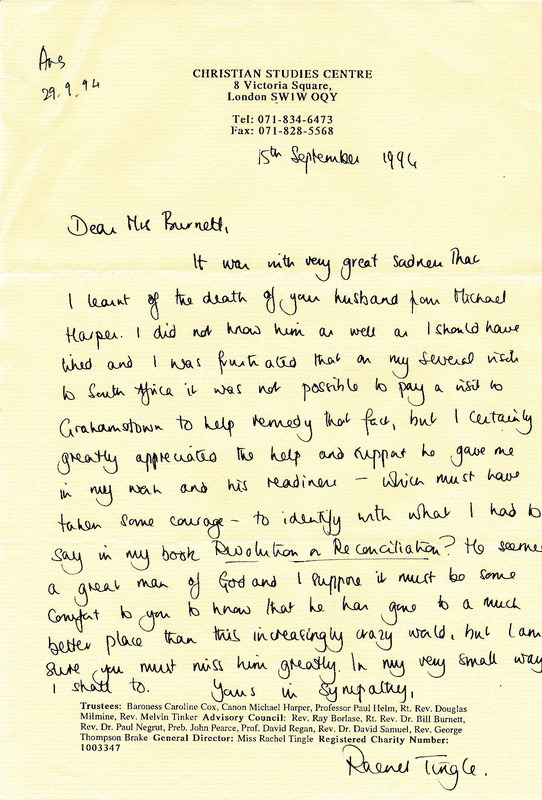 Ans
29.9.94
CHRISTIAN STUDIES CENTRE
8 Victoria Square,
London SW1W OQY
Tel: 071-834-6473
Fax: 071-828-5568
15th September 1994
Dear Mrs Burnett,
It was with very great sadness that
I learnt of the death of your husband from Michael
Harper. I did not know him as well as I should have
liked and I was frustrated that on my several visits
to South Africa it was not possible to pay a visit to
Grahamstown to help remedy that fact, but I certainly
greatly appreciated the help and support he gave me
in my work and his readiness - which must have
taken some courage - to identify with what I had to
say in my book Revolution or Reconciliation? He seemed
a great man of God and I suppose it must be some
comfort to you to know that he has gone to a much
better place than this increasingly crazy world, but I am
sure you must miss him greatly. In my very small way
I shall to. Yours in sympathy,
Trustees: Baroness Caroline Cox, Canon Michael Harper, Professor Paul Helm, Rt. Rev. Douglas
Milmine, Rev. Melvin Tinker Advisory Council: Rev. Ray Borlase, Rt. Rev. Dr. Bill Burnett,
Rev. Dr. Paul Negrut, Preb. John Pearce, Prof. David Regan, Rev. Dr. David Samuel, Rev. George
Thompson Brake General Director: Miss Rachel Tingle Registered Charity Number:
1003347
Rachel Tingle.